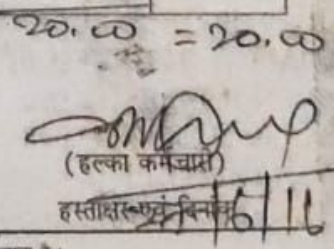 20.00 = 20.00
(हल्का कर्मचारी)
हस्ताक्षर एवं दिनांक
/6/16